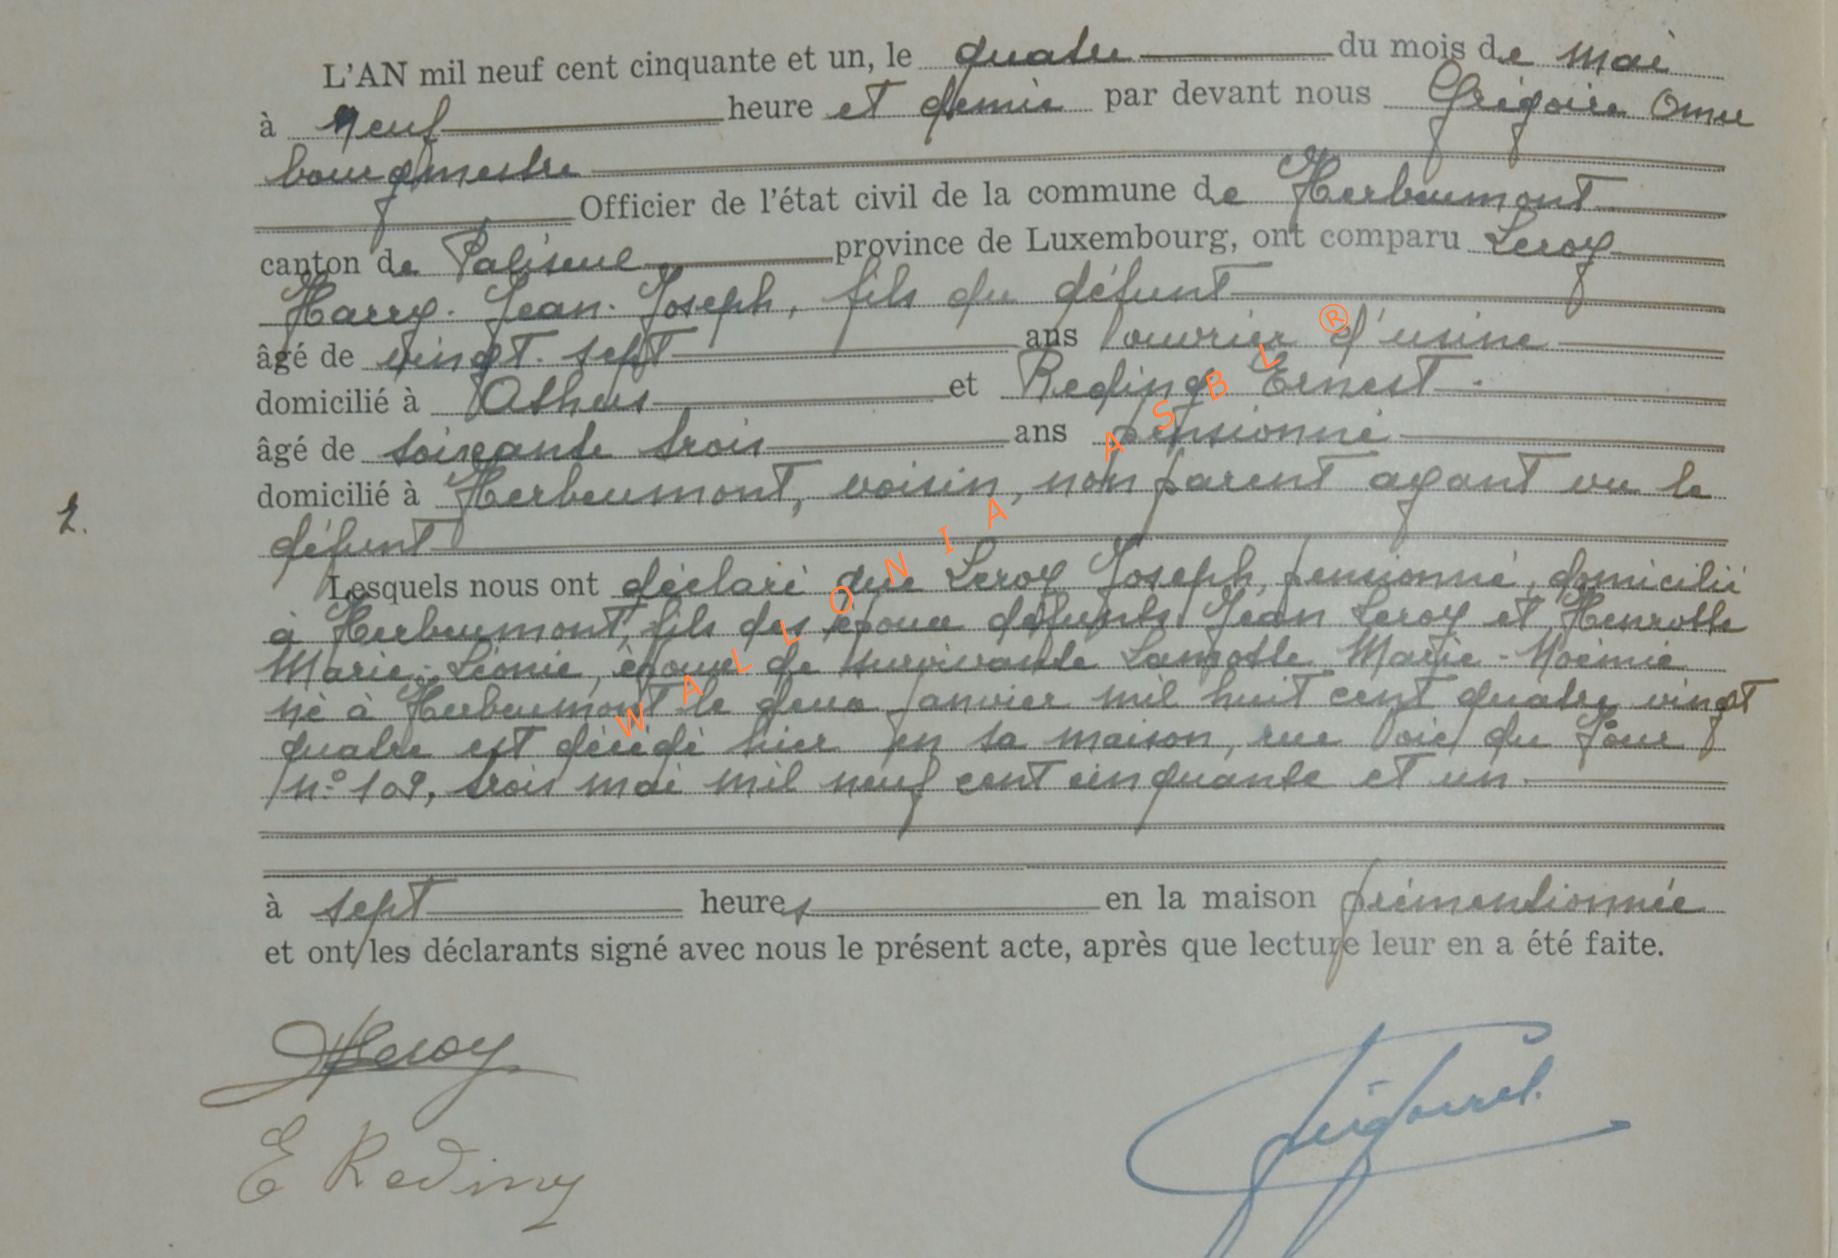 L'AN mil neuf cent cinquante et un, le quatre du mois de mai
à neuf heure et demie par devant nous Grégoire Omer
bourgmestre
Officier de l'état civil de la commune de Herbeumont
canton de Paliseul province de Luxembourg, ont comparu Leroy
Harry-Jean-Joseph, fils du défunt
âgé de vingt-sept ans ouvrier d'usine
domicilié à Athus et Reding Ernest
âgé de soixante trois ans pensionné
domicilié à Herbeumont, voisin, non parent ayant vu le
2.
défunt
Lesquels nous ont déclaré que Leroy Joseph, pensionné, domicilié
à Herbeumont, fils des époux défunts Jean Leroy et Henrotte
Marie-Léonie, époux de survivante Lamotte Marie-Noémie
né à Herbeumont le deux janvier mil huit cent quatre vingt
quatre est décédé hier en sa maison, rue du Four
n° 109, trois mai mil neuf cent cinquante et un
à sept heures en la maison prémentionnée
et ont les déclarants signé avec nous le présent acte, après que lecture leur en a été faite.
HLeroy
E Reding
WALLONIA ASBL ®